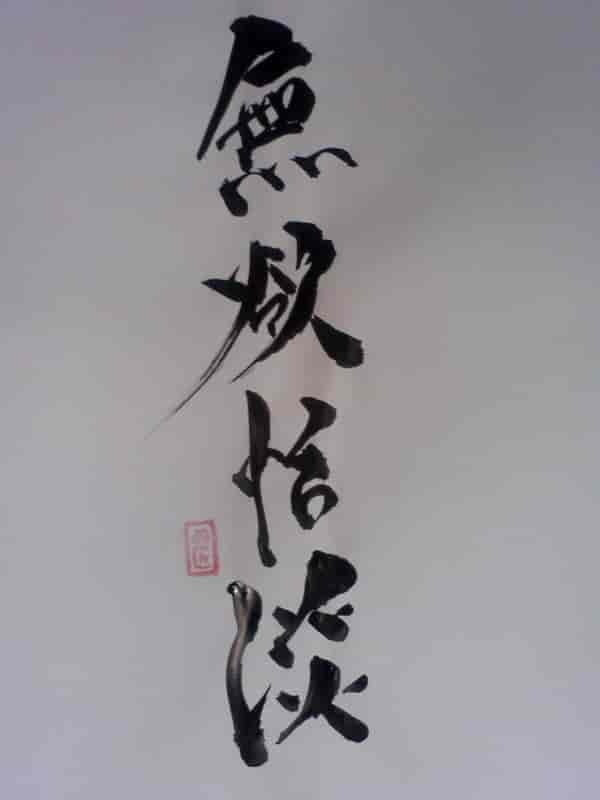 無欲恬淡